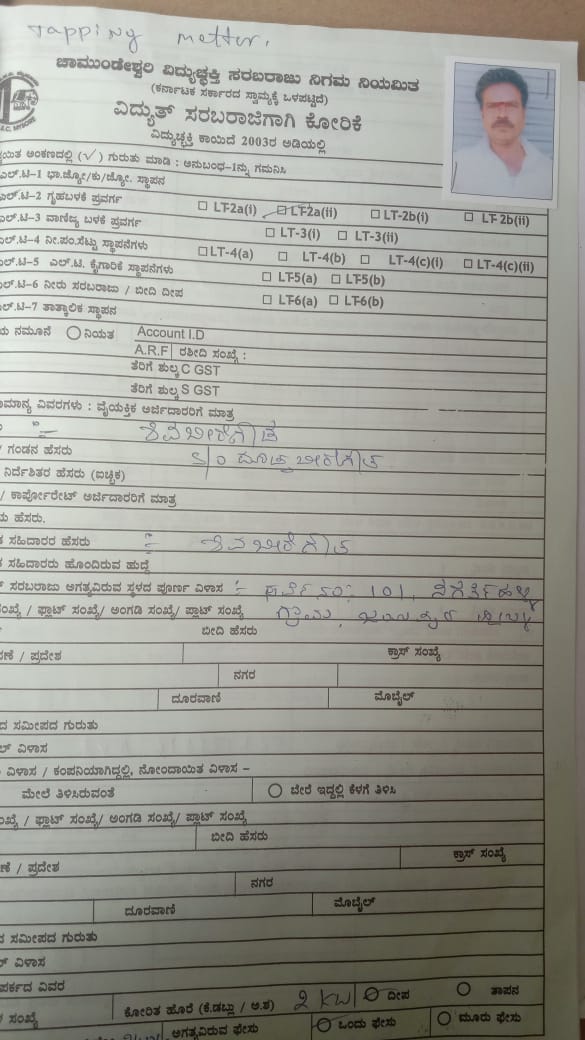 Tapping metter.
ಚಾಮುಂಡೇಶ್ವರಿ ವಿದ್ಯುಚ್ಛಕ್ತಿ ಸರಬರಾಜು ನಿಗಮ ನಿಯಮಿತ
(ಕರ್ನಾಟಕ ಸರ್ಕಾರದ ಸ್ವಾಮ್ಯಕ್ಕೆ ಒಳಪಟ್ಟಿದೆ)
ವಿದ್ಯುತ್ ಸರಬರಾಜಿಗಾಗಿ ಕೋರಿಕೆ
ವಿದ್ಯುಚ್ಛಕ್ತಿ ಕಾಯಿದೆ 2003ರ ಅಡಿಯಲ್ಲಿ
ಅಂಕಣದಲ್ಲಿ (✓) ಗುರುತು ಮಾಡಿ : ಅನುಬಂಧ-1ನ್ನು ಗಮನಿಸಿ
ಎಲ್.ಟಿ-1 ಭಾ.ಜ್ಯೋ/ಕು/ಜ್ಯೋ. ಸ್ಥಾಪನ
ಎಲ್.ಟಿ-2 ಗೃಹಬಳಕೆ ಪ್ರವರ್ಗ LT-2a(i) LT-2a(ii) LT-2b(i) LT-2b(ii)
ಎಲ್.ಟಿ-3 ವಾಣಿಜ್ಯ ಬಳಕೆ ಪ್ರವರ್ಗ LT-3(i) LT-3(ii)
ಎಲ್.ಟಿ-4 ನೀ.ಪಂ.ಸೆಟ್ಟು ಸ್ಥಾಪನೆಗಳು LT-4(a) LT-4(b) LT-4(c)(i) LT-4(c)(ii)
ಎಲ್.ಟಿ-5 ಎಲ್.ಟಿ. ಕೈಗಾರಿಕೆ ಸ್ಥಾಪನೆಗಳು LT-5(a) LT-5(b)
ಎಲ್.ಟಿ-6 ನೀರು ಸರಬರಾಜು / ಬೀದಿ ದೀಪ LT-6(a) LT-6(b)
ಎಲ್.ಟಿ-7 ತಾತ್ಕಾಲಿಕ ಸ್ಥಾಪನ
ನಮೂನೆ ನಿಯತ Account I.D
A.R.F ರಶೀದಿ ಸಂಖ್ಯೆ :
ತೆರಿಗೆ ಶುಲ್ಕ C GST
ತೆರಿಗೆ ಶುಲ್ಕ S GST
ವಿವರಗಳು : ವೈಯಕ್ತಿಕ ಅರ್ಜಿದಾರರಿಗೆ ಮಾತ್ರ
/ ಗಂಡನ ಹೆಸರು S/o
ನಿರ್ದೇಶಿತರ ಹೆಸರು (ಐಚ್ಛಿಕ)
/ ಕಾರ್ಪೋರೇಟ್ ಅರ್ಜಿದಾರರಿಗೆ ಮಾತ್ರ
ಹೆಸರು.
ಸಹಿದಾರರ ಹೆಸರು
ಸಹಿದಾರರು ಹೊಂದಿರುವ ಹುದ್ದೆ
ಸರಬರಾಜು ಅಗತ್ಯವಿರುವ ಸ್ಥಳದ ಪೂರ್ಣ ವಿಳಾಸ :- 101,
/ ಫ್ಲಾಟ್ ಸಂಖ್ಯೆ/ ಅಂಗಡಿ ಸಂಖ್ಯೆ/ ಪ್ಲಾಟ್ ಸಂಖ್ಯೆ ಗ್ರಾಮ,
ಬೀದಿ ಹೆಸರು
/ ಪ್ರದೇಶ ಕ್ರಾಸ್ ಸಂಖ್ಯೆ
ನಗರ
ದೂರವಾಣಿ ಮೊಬೈಲ್
ಸಮೀಪದ ಗುರುತು
ವಿಳಾಸ
ವಿಳಾಸ / ಕಂಪನಿಯಾಗಿದ್ದಲ್ಲಿ, ನೋಂದಾಯಿತ ವಿಳಾಸ –
ಮೇಲೆ ತಿಳಿಸಿರುವಂತೆ ಬೇರೆ ಇದ್ದಲ್ಲಿ ಕೆಳಗೆ ತಿಳಿಸಿ
/ ಫ್ಲಾಟ್ ಸಂಖ್ಯೆ/ ಅಂಗಡಿ ಸಂಖ್ಯೆ/ ಪ್ಲಾಟ್ ಸಂಖ್ಯೆ
ಬೀದಿ ಹೆಸರು
/ ಪ್ರದೇಶ ಕ್ರಾಸ್ ಸಂಖ್ಯೆ
ನಗರ
ದೂರವಾಣಿ ಮೊಬೈಲ್
ಸಮೀಪದ ಗುರುತು
ವಿಳಾಸ
ವಿವರ
ಕೋರಿತ ಹೊರೆ (ಕೆ.ಡಬ್ಲು / ಅ.ಶ) 2 KW ದೀಪ ತಾಪನ
ಸಂಖ್ಯೆ ಅಗತ್ಯವಿರುವ ಫೇಸು ಒಂದು ಫೇಸು ಮೂರು ಫೇಸು